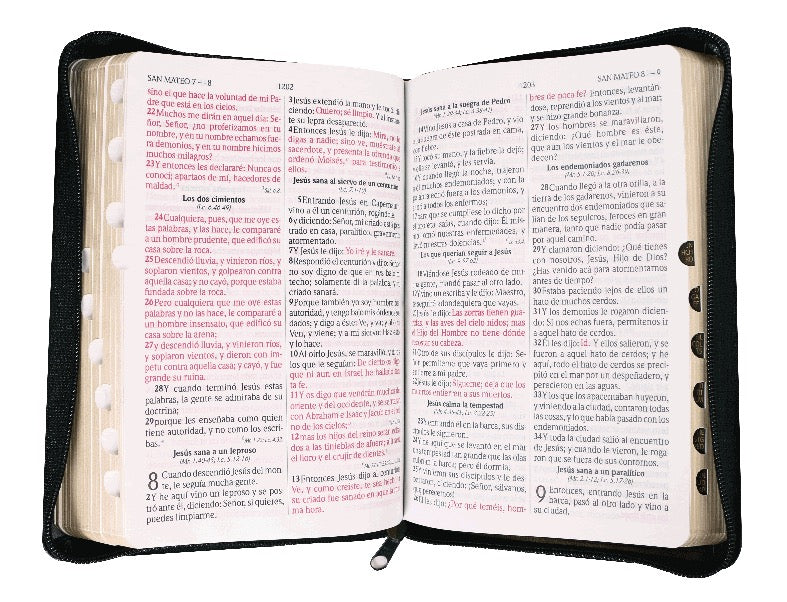 SAN MATEO 7 — 8
1202
sino el que hace la voluntad de mi Pa-
dre que está en los cielos.
22 Muchos me dirán en aquel día: Se-
ñor, Señor, ¿no profetizamos en tu
nombre, y en tu nombre echamos fue-
ra demonios, y en tu nombre hicimos
muchos milagros?
23 Y entonces les declararé: Nunca os
conocí; apartaos de mí, hacedores de
maldad.
Los dos cimientos
(Lc. 6.46-49)
24 Cualquiera, pues, que me oye es-
tas palabras, y las hace, le compararé
a un hombre prudente, que edificó su
casa sobre la roca.
25 Descendió lluvia, y vinieron ríos, y
soplaron vientos, y golpearon contra
aquella casa; y no cayó, porque estaba
fundada sobre la roca.
26 Pero cualquiera que me oye estas
palabras y no las hace, le compararé a
un hombre insensato, que edificó su
casa sobre la arena;
27 y descendió lluvia, y vinieron ríos,
y soplaron vientos, y dieron con ím-
petu contra aquella casa; y cayó, y fue
grande su ruina.
28 Y cuando terminó Jesús estas
palabras, la gente se admiraba de su
doctrina;
29 porque les enseñaba como quien
tiene autoridad, y no como los escri-
bas.
Jesús sana a un leproso
(Mr. 1.40-45; Lc. 5.12-16)
8 Cuando descendió Jesús del mon
te, le seguía mucha gente.
2 Y he aquí vino un leproso y se pos
tró ante él, diciendo: Señor, si quieres,
puedes limpiarme.
3 Jesús extendió la mano y le
ciendo: Quiero; sé limpio. Y al
te su lepra desapareció.
4 Entonces Jesús le dijo: Mira, no lo
digas a nadie; sino ve, muéstrate al
sacerdote, y presenta la ofrenda que
ordenó Moisés, para testimonio
ellos.
Jesús sana al siervo de un centurión
(Lc. 7.1-10)
5 Entrando Jesús en Capernaum,
vino a él un centurión, rogándole
6 y diciendo: Señor, mi criado está pos
trado en casa, paralítico, gravemente
atormentado.
7 Y Jesús le dijo: Yo iré y le sanaré.
8 Respondió el centurión y dijo:
no soy digno de que entres bajo mi
techo; solamente di la palabra, y mi
criado sanará.
9 Porque también yo soy hombre
autoridad, y tengo bajo mis órdenes
dados; y digo a éste: Ve, y va; y al
Ven, y viene; y a mi siervo: Haz
y lo hace.
10 Al oírlo Jesús, se maravilló, y
los que le seguían: De cierto os
que ni aun en Israel he hallado
ta fe.
11 Y os digo que vendrán muchos
oriente y del occidente, y se sentarán
con Abraham e Isaac y Jacob en el
no de los cielos;
12 mas los hijos del reino serán echa
dos a las tinieblas de afuera; allí
el lloro y el crujir de dientes.
13 Entonces Jesús dijo al centurión
Ve, y como creíste, te sea hecho
su criado fue sanado en aquella mis
ma hora.
1203
SAN MATEO 8 — 9
Jesús sana a la suegra de Pedro
14 Vino Jesús a casa de Pedro, y vio
la suegra de éste postrada en cama,
con fiebre.
15 Y tocó su mano, y la fiebre la dejó;
y ella se levantó, y les servía.
16 Y cuando llegó la noche, trajeron
a él muchos endemoniados; y con la
palabra echó fuera a los demonios, y
sanó a todos los enfermos;
17 para que se cumpliese lo dicho por
el profeta Isaías, cuando dijo: Él mis-
mo tomó nuestras enfermedades, y
llevó nuestras dolencias.
Los que querían seguir a Jesús
18 Viéndose Jesús rodeado de mu-
cha gente, mandó pasar al otro lado.
19 Y vino un escriba y le dijo: Maestro,
te seguiré adondequiera que vayas.
20 Jesús le dijo: Las zorras tienen gua-
ridas, y las aves del cielo nidos; mas
el Hijo del Hombre no tiene dónde
recostar su cabeza.
21 Otro de sus discípulos le dijo: Se-
ñor, permíteme que vaya primero y
entierre a mi padre.
22 Jesús le dijo: Sígueme; deja que los
muertos entierren a sus muertos.
Jesús calma la tempestad
23 Y entrando él en la barca, sus dis-
cípulos le siguieron.
24 Y he aquí que se levantó en el mar
una tempestad tan grande que las olas
cubrían la barca; pero él dormía.
25 Y vinieron sus discípulos y le des-
pertaron, diciendo: ¡Señor, sálvanos,
que perecemos!
26 Él les dijo: ¿Por qué teméis, hom-
bres de poca fe? Entonces, levantán-
dose, reprendió a los vientos y al mar;
y se hizo grande bonanza.
27 Y los hombres se maravillaron,
diciendo: ¿Qué hombre es éste,
que aun los vientos y el mar le obe-
decen?
Los endemoniados gadarenos
(Mr. 5.1-20; Lc. 8.26-39)
28 Cuando llegó a la otra orilla, a la
tierra de los gadarenos, vinieron a su
encuentro dos endemoniados que sa-
lían de los sepulcros, feroces en gran
manera, tanto que nadie podía pasar
por aquel camino.
29 Y clamaron diciendo: ¿Qué tienes
con nosotros, Jesús, Hijo de Dios?
¿Has venido acá para atormentarnos
antes de tiempo?
30 Estaba paciendo lejos de ellos un
hato de muchos cerdos.
31 Y los demonios le rogaron dicien-
do: Si nos echas fuera, permítenos ir
a aquel hato de cerdos.
32 Él les dijo: Id. Y ellos salieron, y se
fueron a aquel hato de cerdos; y he
aquí, todo el hato de cerdos se preci-
pitó en el mar por un despeñadero, y
perecieron en las aguas.
33 Y los que los apacentaban huyeron,
y viniendo a la ciudad, contaron todas
las cosas, y lo que había pasado con los
endemoniados.
34 Y toda la ciudad salió al encuentro
de Jesús; y cuando le vieron, le roga-
ron que se fuera de sus contornos.
Jesús sana a un paralítico
(Mr. 2.1-12; Lc. 5.17-26)
9 Entonces, entrando Jesús en la
barca, pasó al otro lado y vino a
su ciudad.